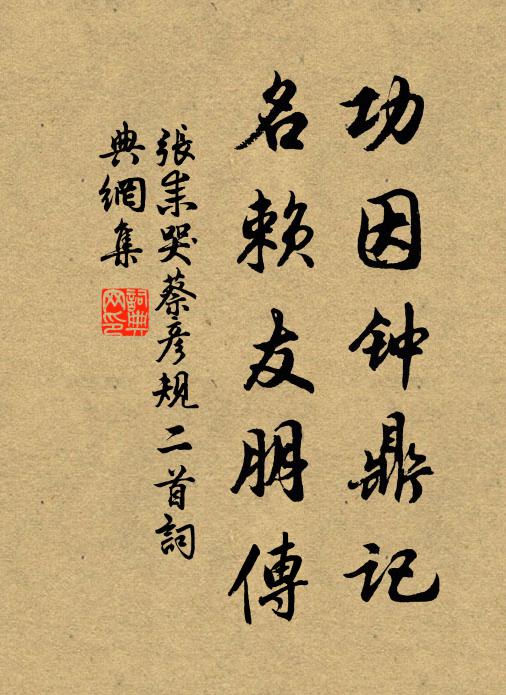 功因钟鼎记
名赖友朋傳
張耒哭蔡彦規二首詞
典網集
詞典
网印